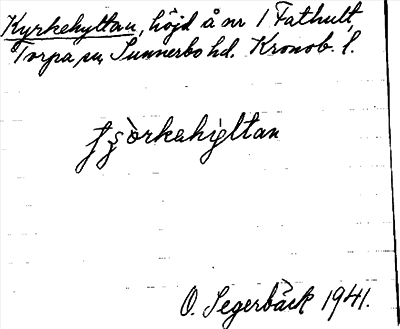 Kyrkehyltan, höjd å nr 1 Fathult,
Torpa sn, Sunnerbo hd. Kronob. l.
O. Segerbäck 1941.